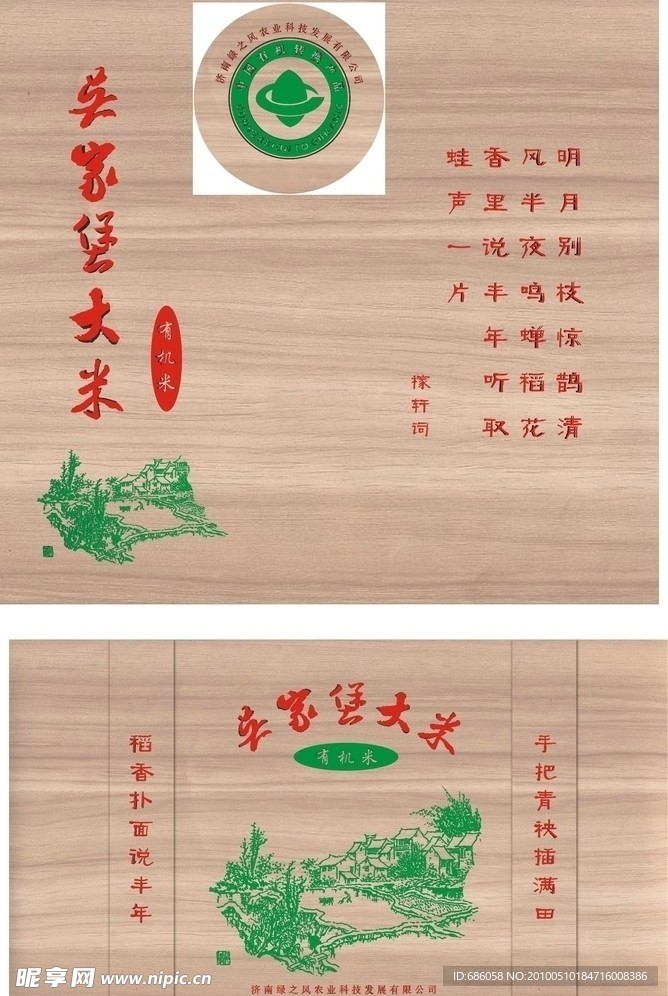 济南绿之风农业科技发展有限公司
中国有机转换产品
CONVERSION TO ORGANIC
吴家堡大米
有机米
明月别枝惊鹊清
风半夜鸣蝉稻花
香里说丰年听取
蛙声一片
稼轩词
吴家堡大米
有机米
稻香扑面说丰年
手把青秧插满田
济南绿之风农业科技发展有限公司
昵享网 www.nipic.cn
ID:686058 NO:20100510184716008386